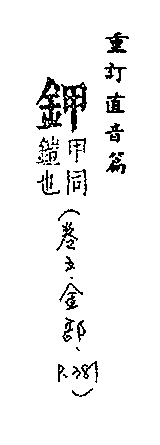 重訂直音篇
鉀甲同
鎧也
(卷五·金部、P.281)